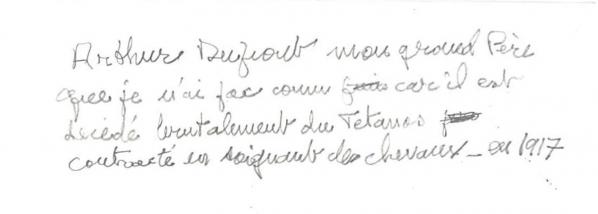 Arthur Dufront mon grand Père
que je n'ai pas connu car il est
décédé brutalement du Tetanos
contracté en soignant des chevaux - en 1917